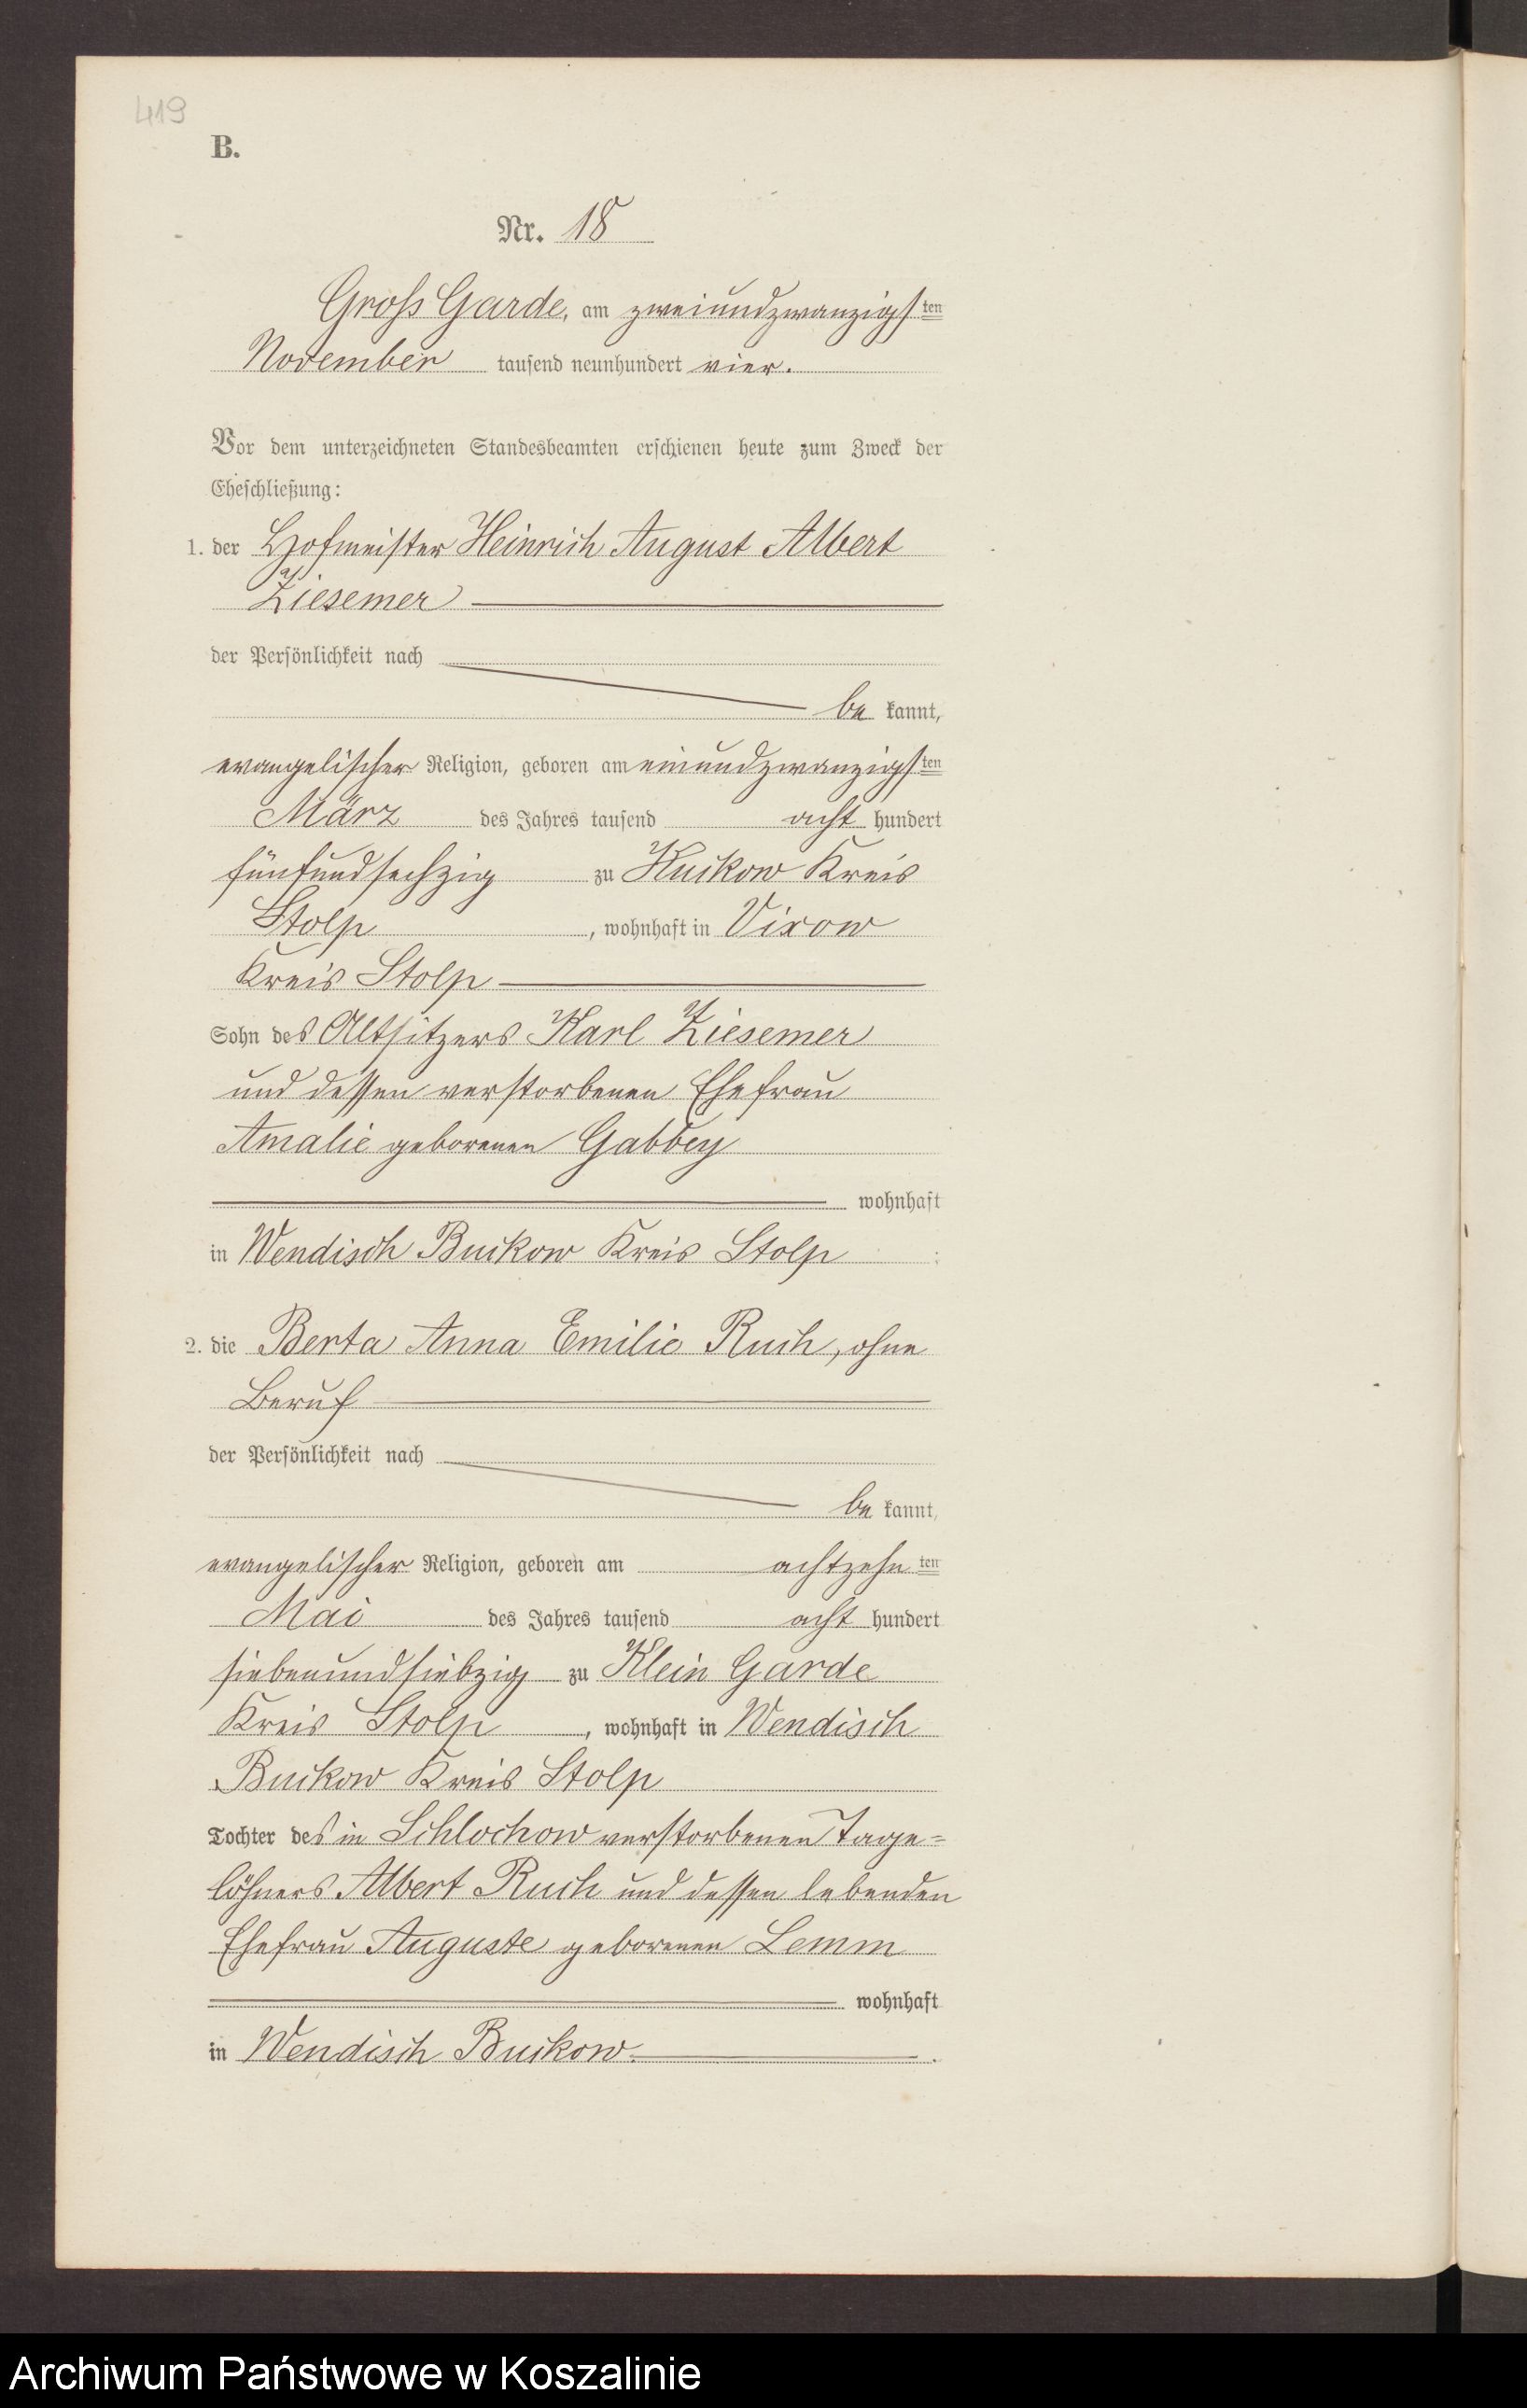 419
B.
Nr. 18
Gross Garde, am zweiundzwanzigsten
November tausend neunhundert vier.
Vor dem unterzeichneten Standesbeamten erschienen heute zum Zweck der
Eheschließung:
1. der Hofmeister Heinrich August Albert
Ziesemer
der Persönlichkeit nach
be kannt,
evangelischer Religion, geboren am einundzwanzigsten
März des Jahres tausend acht hundert
fünfundsechzig zu Kuckow Kreis
Stolp, wohnhaft in Vixow
Kreis Stolp
Sohn des Altsitzers Karl Ziesemer
und dessen verstorbenen Ehefrau
Amalie geborenen Gabbey
wohnhaft
in Wendisch Buckow Kreis Stolp :
2. die Berta Anna Emilie Ruch, ohne
Beruf
der Persönlichkeit nach
be kannt,
evangelischer Religion, geboren am achtzehnten
Mai des Jahres tausend acht hundert
siebenundsiebzig zu Klein Garde
Kreis Stolp, wohnhaft in Wendisch
Buckow Kreis Stolp
Tochter des in Schlochow verstorbenen Tage=
löhners Albert Ruch und dessen lebenden
Ehefrau Auguste geborenen Lemm
wohnhaft
in Wendisch Buckow.
Archiwum Państwowe w Koszalinie